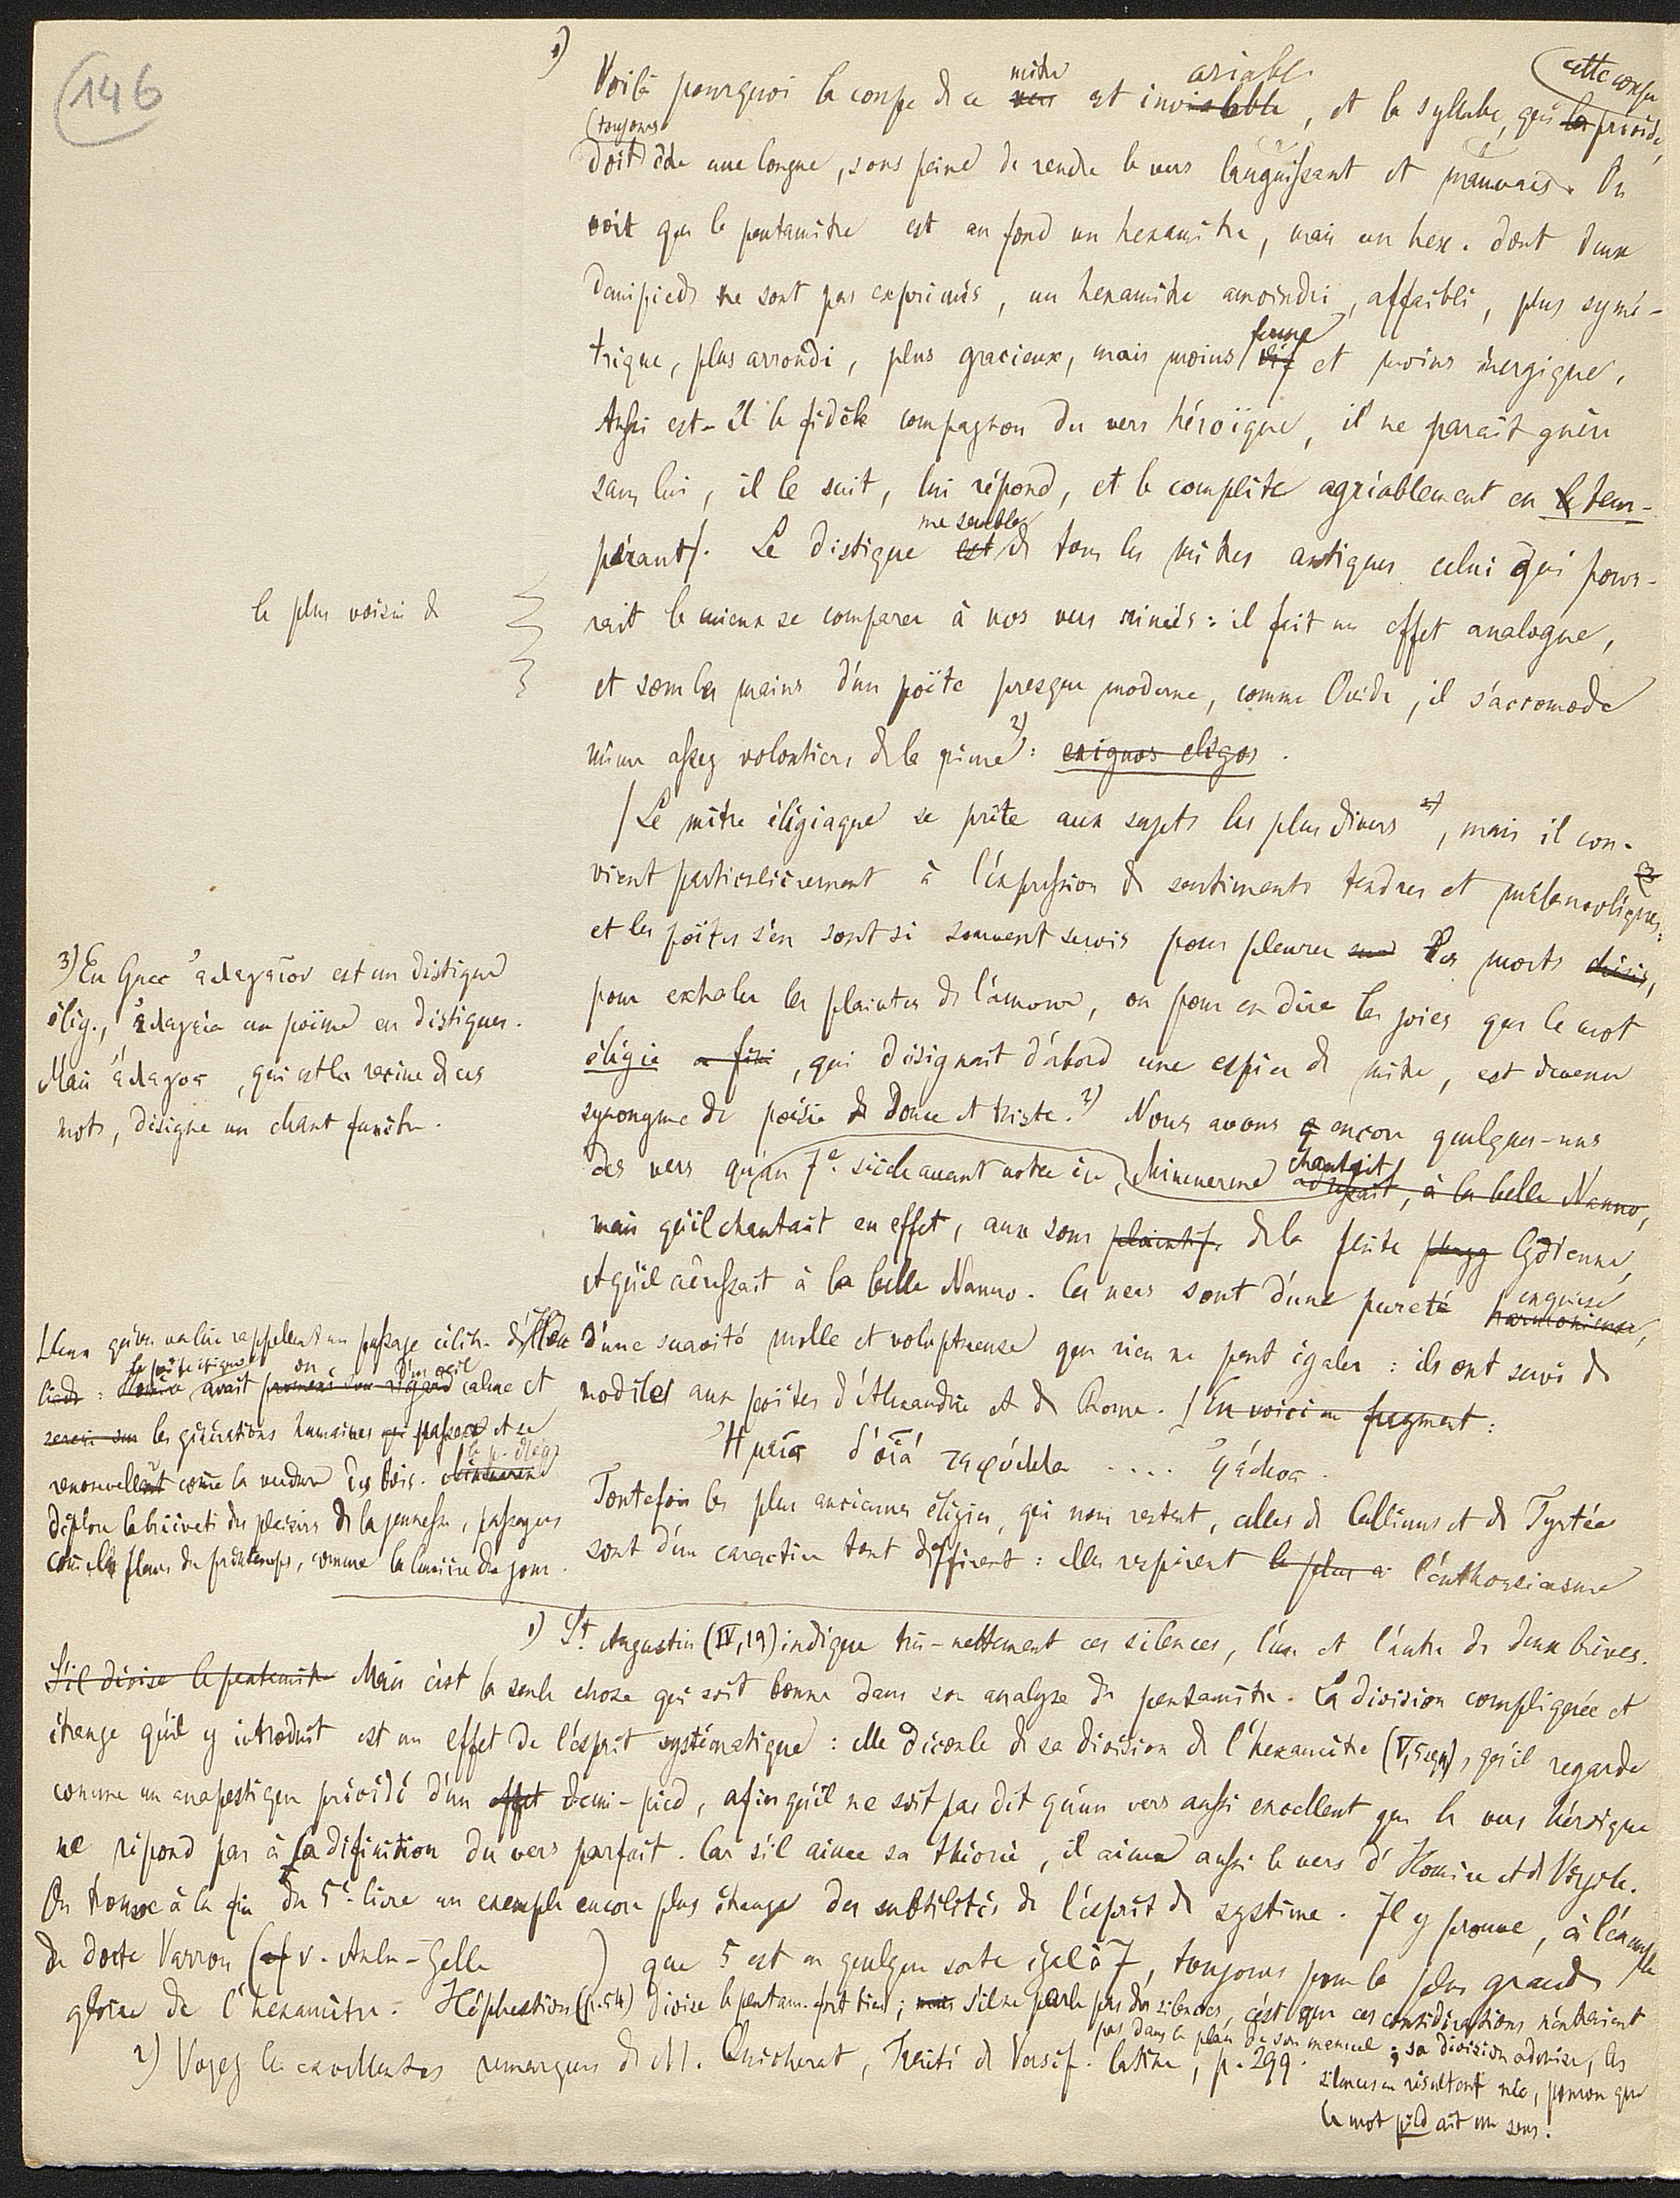 146
1) Voilà pourquoi la coupe de ce vers mètre est inviolable ariable, et la syllabe, qui la précède, cette coupe
doit toujours être une longue, sous peine de rendre le vers languissant et mauvais. On
voit que le pentamètre est au fond un hexamètre, mais un hex. dont deux
demipieds ne sont pas exprimés, un hexamètre amoindri, affaibli, plus symé-
trique, plus arrondi, plus gracieux, mais moins vif ferme et moins énergique.
Aussi est-il le fidèle compagnon du vers héroïque, il ne paraît guère
sans lui, il le suit, lui répond, et le complète agréablement en le tem-
pérant. Le distique est me semble de tous les mètres antiques celui qui pour-
rait le mieux se comparer à nos vers rimés : il fait un effet analogue,
le plus voisin de
et sous les mains d'un poëte presque moderne, comme Ovide, il s'accomode
même assez volontiers de la rime 2) : exiguos elegos.
Le mètre élégiaque se prête aux sujets les plus divers, mais il con-
vient particulièrement à l'expression de sentiments tendres et mélancoliques :
et les poëtes s'en sont si souvent servis pour pleurer les morts chéris,
pour exhaler les plaintes de l'amour, ou pour en dire les joies que le mot
élégie a fini, qui désignait d'abord une espèce de mètre, est devenu
synonyme de poésie de douce et triste. Nous avons encore quelques-uns
des vers qu'au 7e. siècle avant notre ère, Mimnerme adressait chantait, à la belle Nanno,
mais qu'il chantait en effet, aux sons plaintifs de la flûte phryg lydienne,
et qu'il adressait à la belle Nanno. Ces vers sont d'une pureté harmonieuse exquise,
d'une suavité molle et voluptueuse que rien ne peut égaler : ils ont servi de
modèles aux poëtes d'Alexandrie et de Rome. En voici un fragment :
Ἡμεῖς δ' οἷά τε φύλλα .... γήραος.
Toutefois les plus anciennes élégies, qui nous restent, celles de Callinus et de Tyrtée
sont d'un caractère tout différent : elles respirent le plus a l'enthousiasme
3) En Grec ἐλεγεῖον est un distique
élég., ἐλεγεία un poëme en distiques.
Mais ἔλεγος, qui est la racine de ces
mots, désigne un chant funèbre.
Ceux qu'on va lire rappellent un passage célèbre de l'Iliade
: Homère le poëte épique avait promené son regard d'un œil calme et
serein sur les générations humaines qui passent et se
renouvellent come la verdure des bois. Mimnerme le p. élég.
déplore la brièveté des plaisirs de la jeunesse, passagers
come les fleurs du printemps, comme la lumière du jour.
1) St. Augustin (IV, 19) indique très-nettement ces silences, l'un et l'autre de deux brèves.
S'il divise le pentamètre Mais c'est la seule chose qui soit bonne dans son analyse du pentamètre. La division compliquée et
étrange qu'il y introduit est un effet de l'esprit systématique : elle découle de sa division de l'hexamètre (V, 5 sqq), qu'il regarde
comme un anapestique précédé d'un effet demi-pied, afin qu'il ne soit pas dit qu'un vers aussi excellent que le vers héroïque
ne répond pas à sa définition du vers parfait. Car s'il aime sa théorie, il aime aussi le vers d'Homère et de Virgile.
On trouve à la fin du 5e. livre un exemple encore plus étrange des subtilités de l'esprit de système. Il y prouve, à l'exemple
du docte Varron (cf v. Aulu-Gelle ) que 5 est en quelque sorte égal à 7, toujours pour la plus grande
gloire de l'hexamètre. Héphestion (p. 54) divise le pentam. fort bien ; mais s'il ne parle pas des silences, c'est que ces considérations n'entraient
pas dans le plan de son manuel ; sa division admise, les
silences en résultent néc, pourvu que
le mot pied ait un sens.
2) Voyez les excellentes remarques de M. Quicherat, Traité de Versif. latine, p. 299.